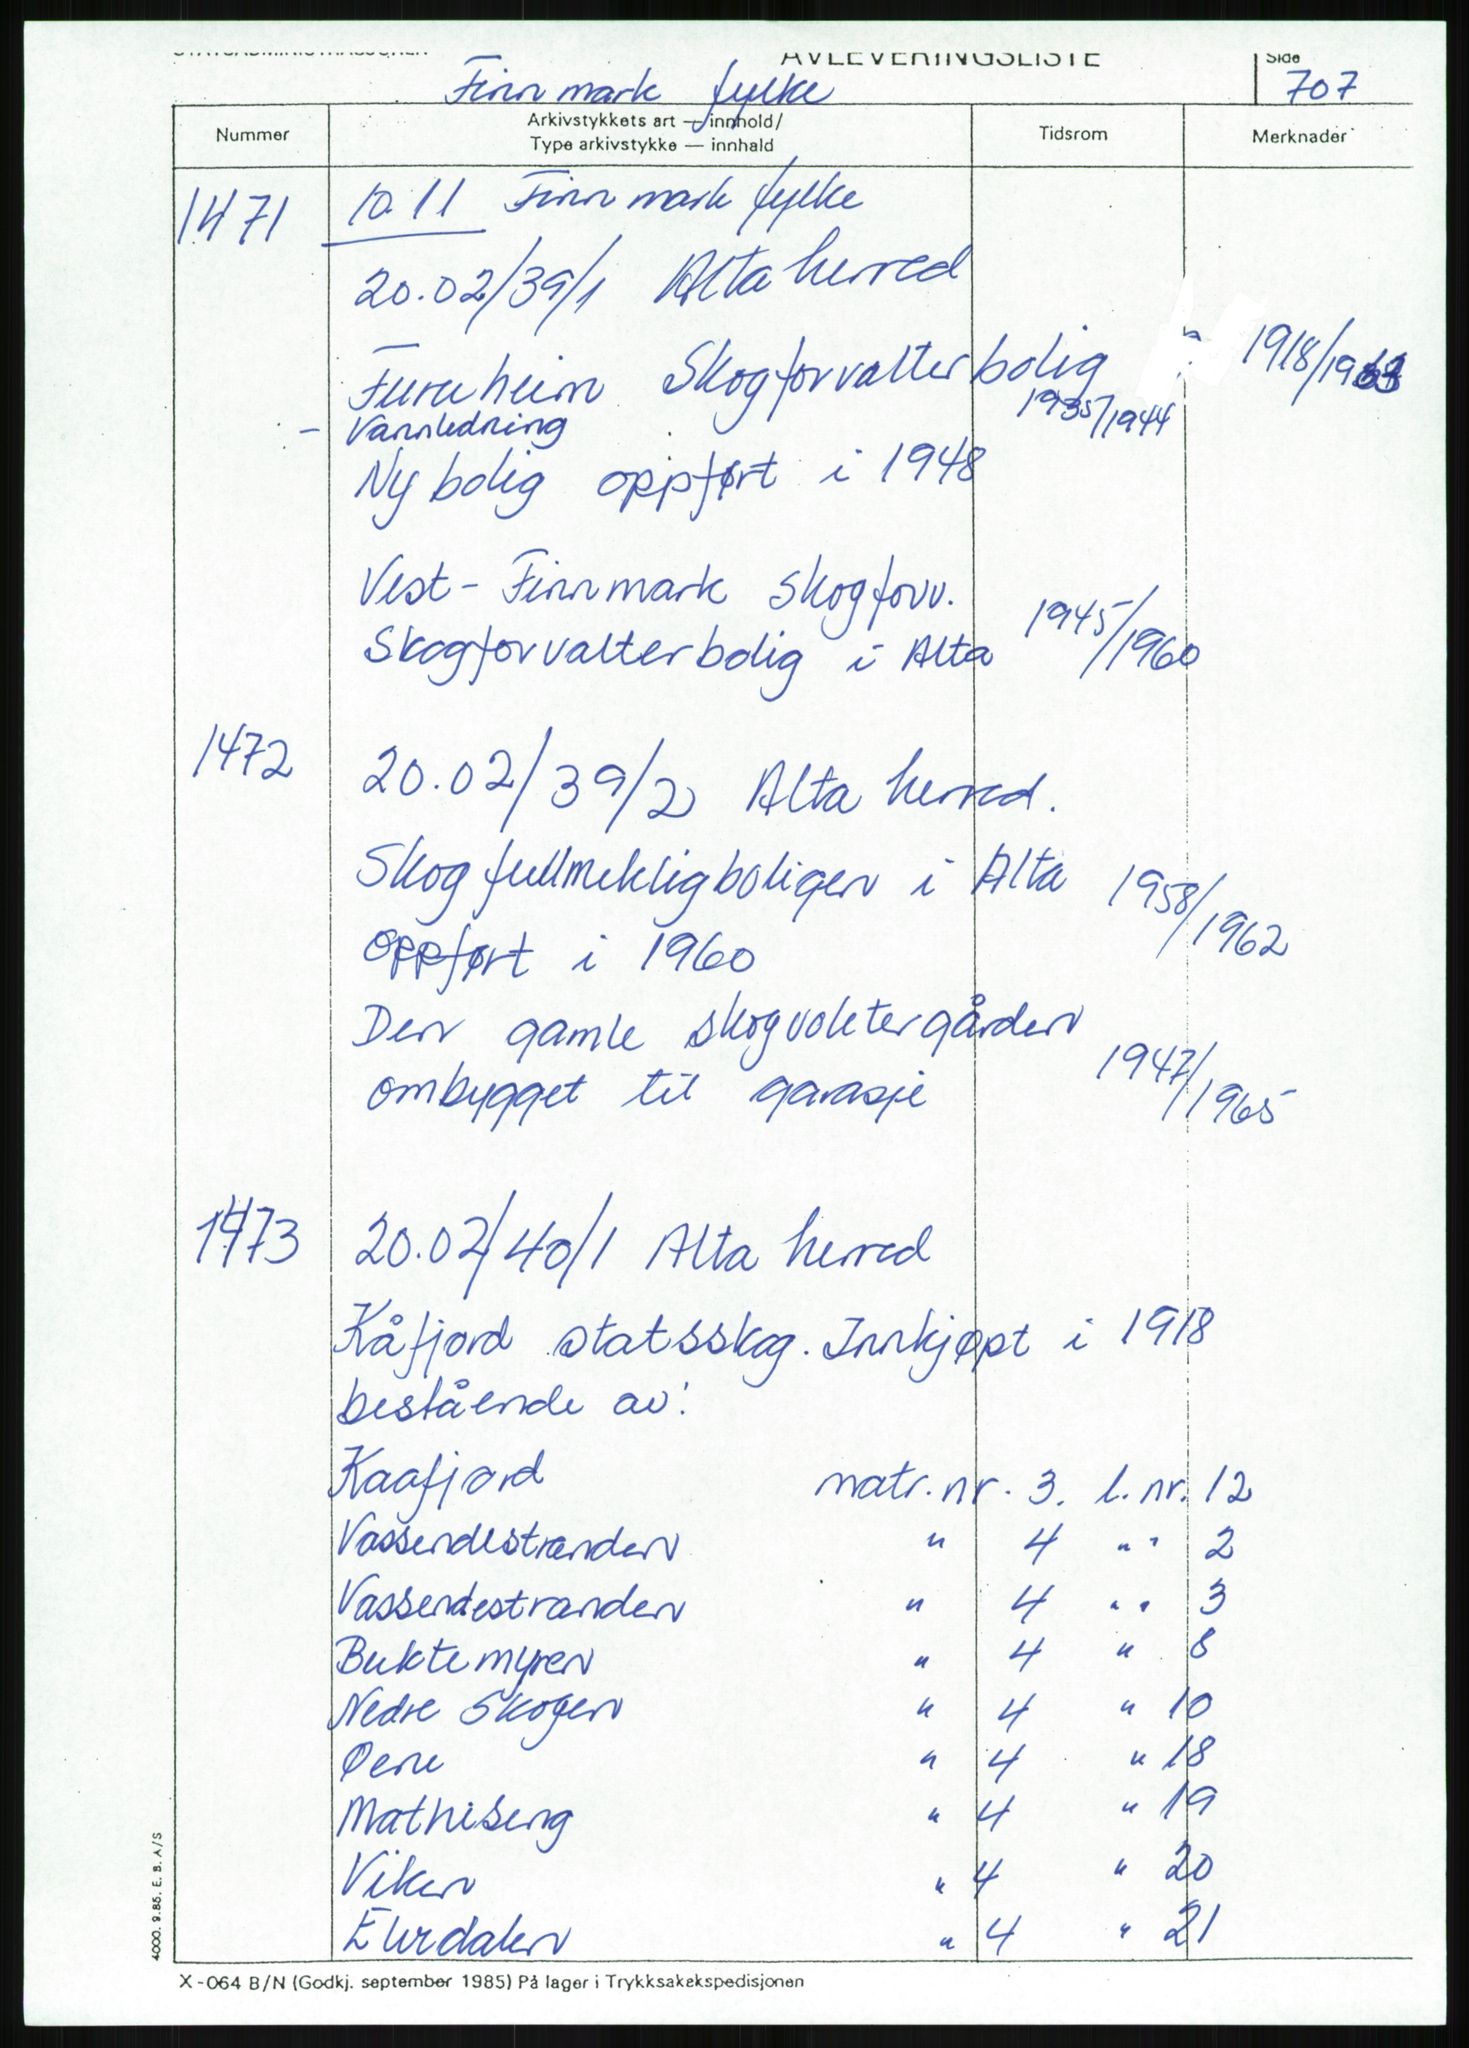 AVLEVERINGSLISTE
Side
Finnmark fylke
707
Nummer
Arkivstykkets art — innhold/
Type arkivstykke — innhald
Tidsrom
Merknader
1471
10.11 Finnmark fylke
20.02/39/1 Alta herred
Furuheim Skogforvalterbolig 1918/
- Vannledning 1935/1944
Ny bolig oppført i 1948
Vest-Finnmark skogforv.
Skogforvalterbolig i Alta 1945/1960
1472
20.02/39/2 Alta herred.
Skogfullmektigboligen i Alta 1958/1962
oppført i 1960
Den gamle skogvoktergården
ombygget til garasje 1947/1965
1473
20.02/40/1 Alta herred
Kåfjord statsskog. Innkjøpt i 1918
bestående av:
Kaafjord matr. nr. 3. l. nr. 12
Vassendestranden " 4 " " 2
Vassendestranden " 4 " " 3
Buktemyren " 4 " 8
Nedre Skogen " 4 " 10
" 4 " 18
Mathiseng " 4 " 19
Viken " 4 " 20
" 4 " 21
4000. 9.85. E. B. A/S
X-064 B/N (Godkj. september 1985) På lager i Trykksakekspedisjonen